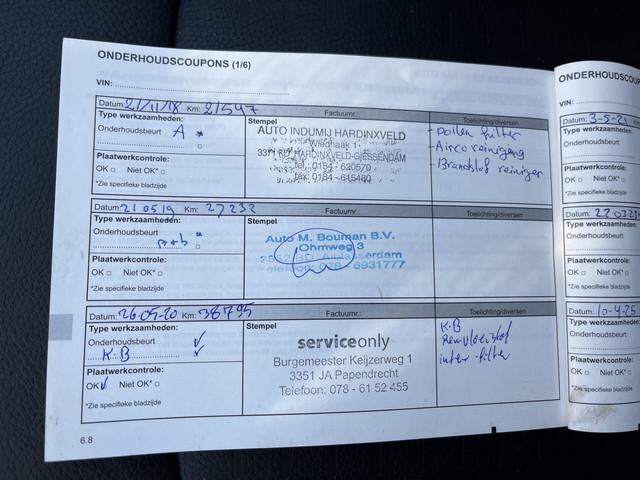 ONDERHOUDSCOUPONS (1/6)
VIN:
Datum: 21/11/18 Km: 21547 Factuurnr.: Toelichting/diversen
Type werkzaamheden:
Onderhoudsbeurt A
Plaatwerkcontrole:
OK Niet OK*
*Zie specifieke bladzijde
Stempel
AUTO INDUMIJ HARDINXVELD
HARDINXVELD-GIESSENDAM
tel.: 0184 - 620570
fax: 0184 - 615460
- pollen filter
- Airco reiniging
- Brandstof reiniger
Datum: 21 05 19 Km: 27232 Factuurnr.: Toelichting/diversen
Type werkzaamheden:
Onderhoudsbeurt
A+b
Plaatwerkcontrole:
OK Niet OK*
*Zie specifieke bladzijde
Stempel
Auto M. Bouman B.V.
Ohmweg 3
2952 BD Alblasserdam
telefoon: 078 - 6931777
Datum: 26-05-20 Km: 38795 Factuurnr.: Toelichting/diversen
Type werkzaamheden:
Onderhoudsbeurt
K.B
Plaatwerkcontrole:
OK Niet OK*
*Zie specifieke bladzijde
Stempel
serviceonly
Burgemeester Keijzerweg 1
3351 JA Papendrecht
Telefoon: 078 - 61 52 455
K.B
Remvloeistof
inter filter
6.8
ONDERHOUDSCOUP
VIN:
Datum: 3-5-21
Type werkzaamheden:
Onderhoudsbeurt
Plaatwerkcontrole:
OK Niet OK*
*Zie specifieke bladzij
Datum: 22 03 23
Type werkzaamheden
Onderhoudsbeurt
Plaatwerkcontrole:
OK Niet OK*
*Zie specifieke bladzij
Datum: 10-4-25
Type werkzaamheden
Onderhoudsbeurt
Plaatwerkcontrole:
OK Niet OK*
*Zie specifieke bladzij